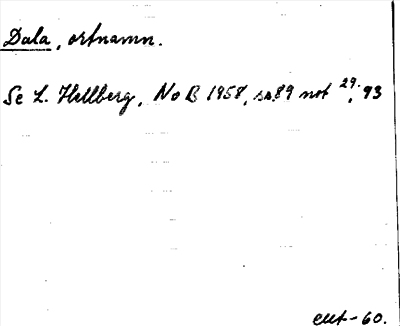 Dala, ortnamn.
Se L. Hellberg, NoB 1958, s. 89 not 29. , 93
cut-60.